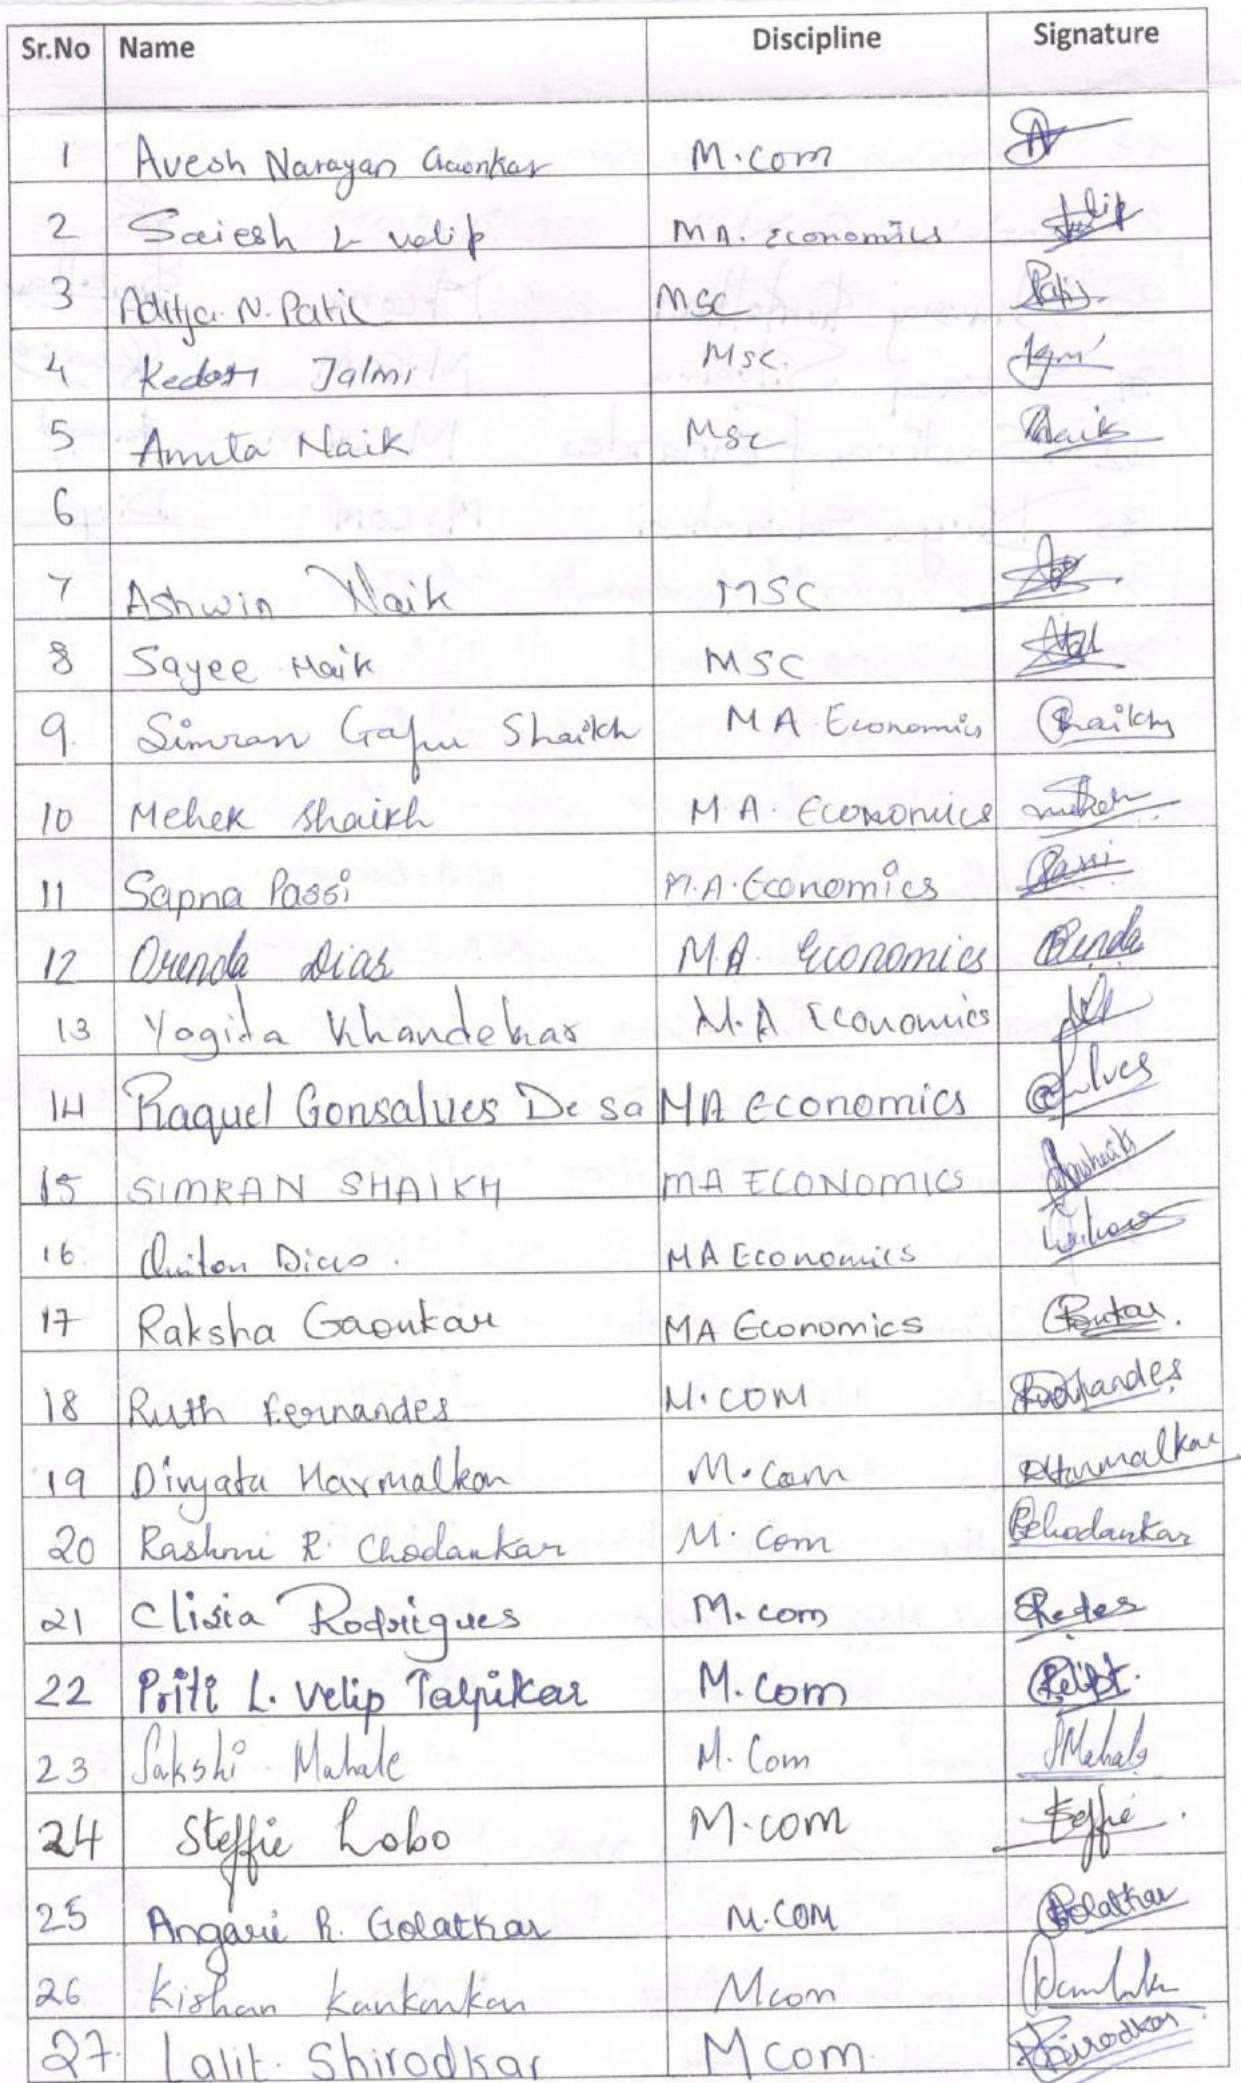 Sr.No Name Discipline Signature
1 Avesh Narayan Gaonkar M.com
2 Saiesh L velip MA. Economics Velip
3 Aditya N. Patil MSC Patil
4 Kedar Jalmi Msc.
5 Amita Naik MSc Naik
6
7 Ashwin Naik MSC
8 Sayee Naik MSC
9. Simran Gafur Shaikh MA. Economics Shaikh
10 Mehek Shaikh M A. Economics
11 Sapna Passi M.A. Economics Passi
12 Orenda Dias M.A Economics
13 Yogita Khandekar M.A Economics
14 Raquel Gonsalves De sa MA Economics
15 SIMRAN SHAIKH MA ECONOMICS
16. Quiton Dias. MA Economics
17 Raksha Gaonkar MA Economics
18 Ruth Fernandes M.COM
19 Divyata Harmalkar M.Com DHarmalkar
20 Rashmi R. Chodankar M. Com RChodankar
21 Clisia Rodrigues M.com
22 Priti L. Velip Talpikar M.Com
23 Sakshi. Mahale M. Com SMahale
24 Steffie Lobo M.com Steffie
25 Angarie R. Golatkar M.COM Golatkar
26 Kishan Kankonkar Mcom
27. Lalit. Shirodkar M com. Shirodkar